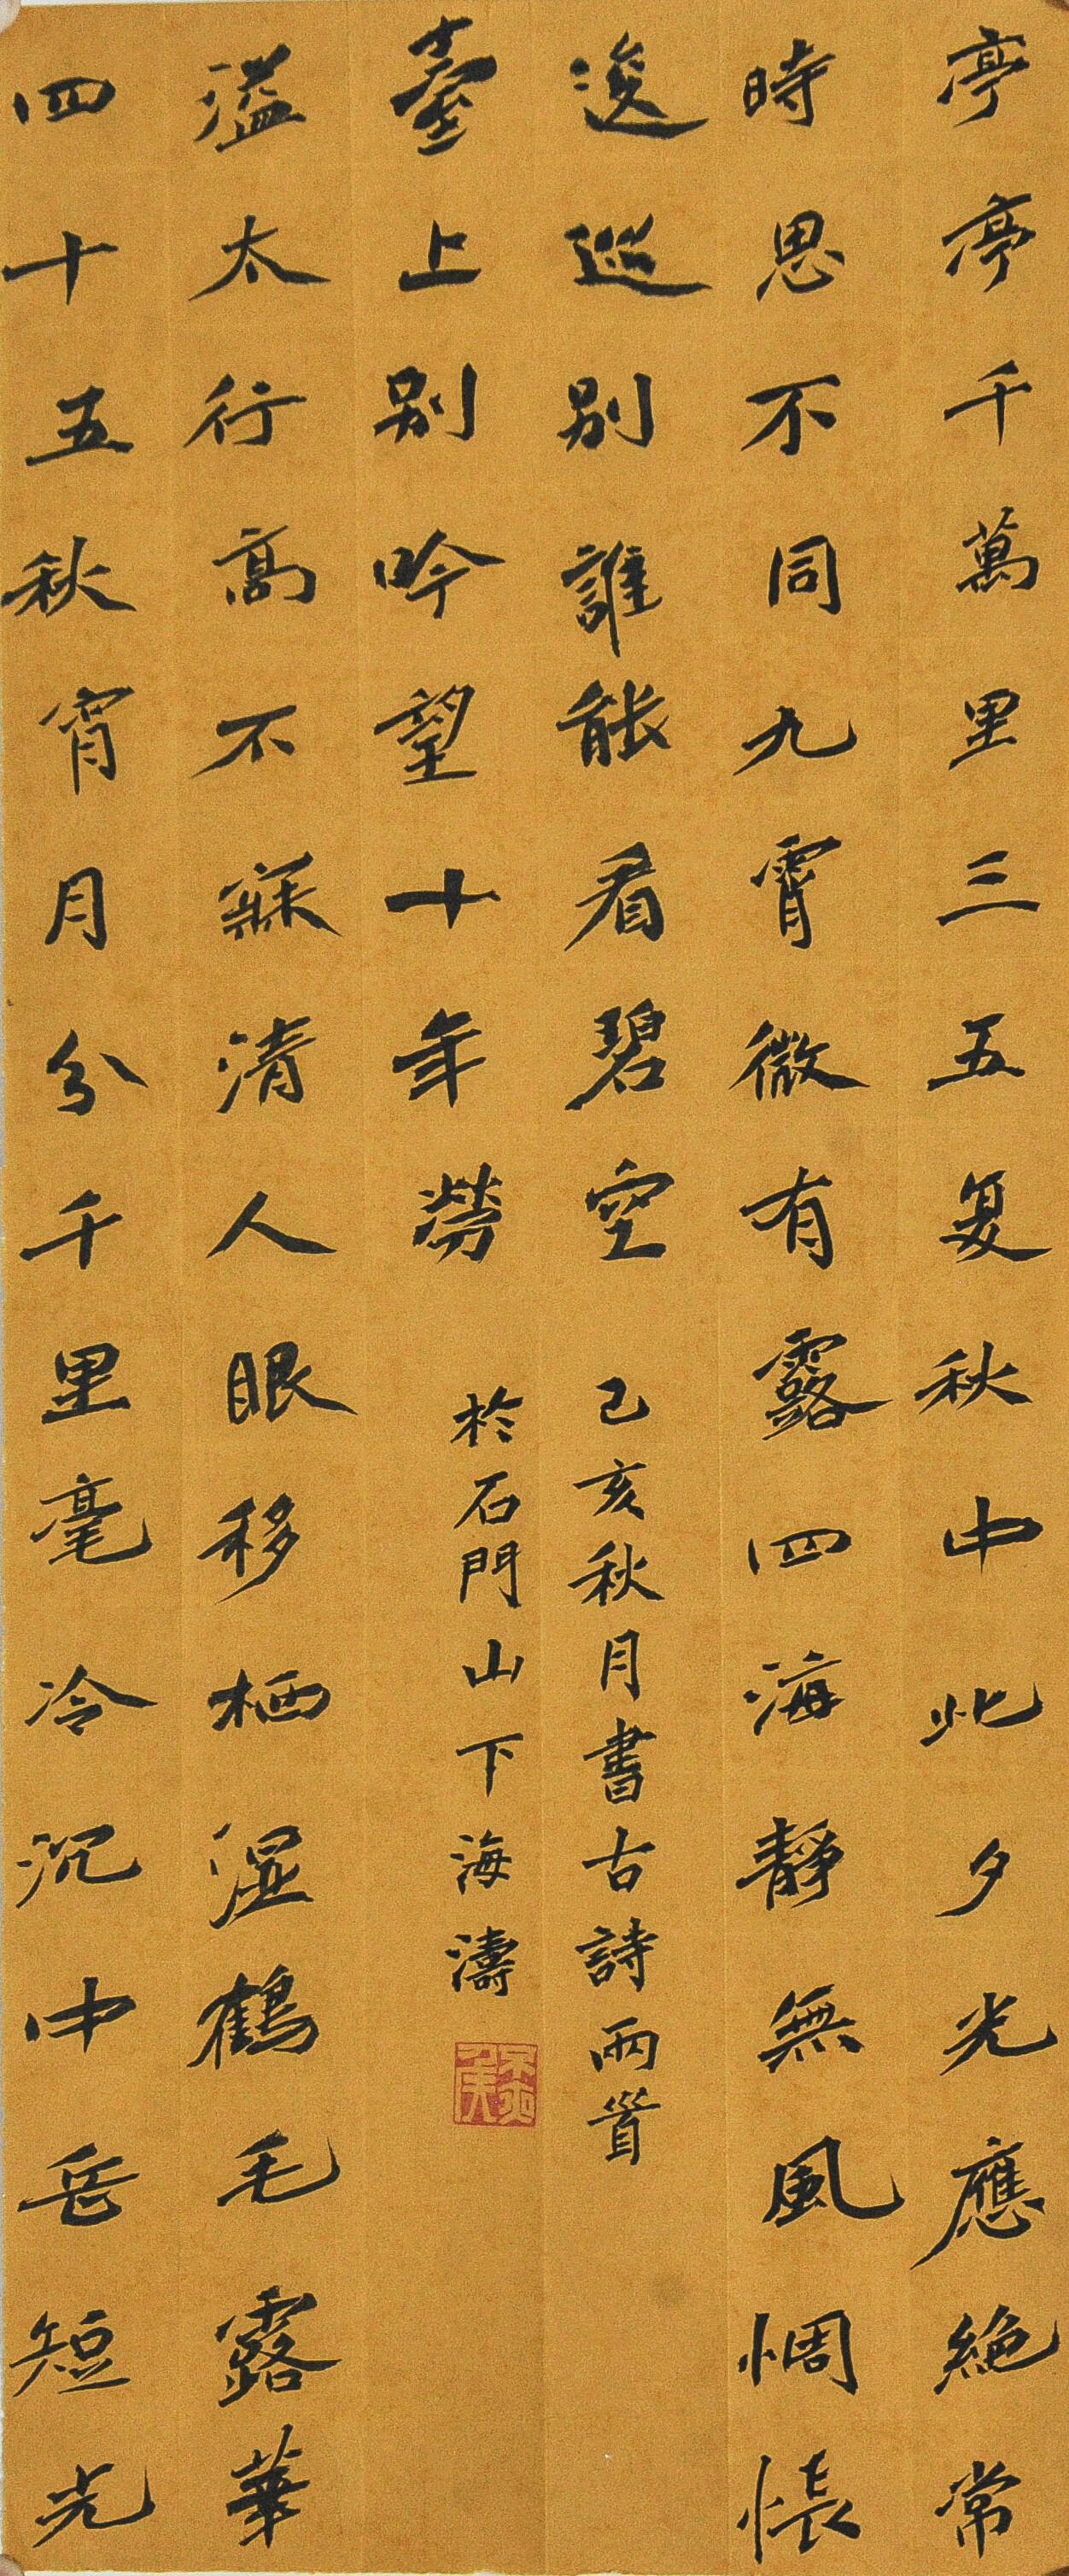 亭亭千萬里三五复秋中此夕光應絶常
時思不同九霄微有露四海靜無風惆悵
逡巡別誰能看碧空
四十五秋宵月分千里毫冷沉中岳短光
溢太行高不寐清人眼移栖濕鶴毛露華
臺上別吟望十年勞
己亥秋月書古詩兩首
於石門山下海濤